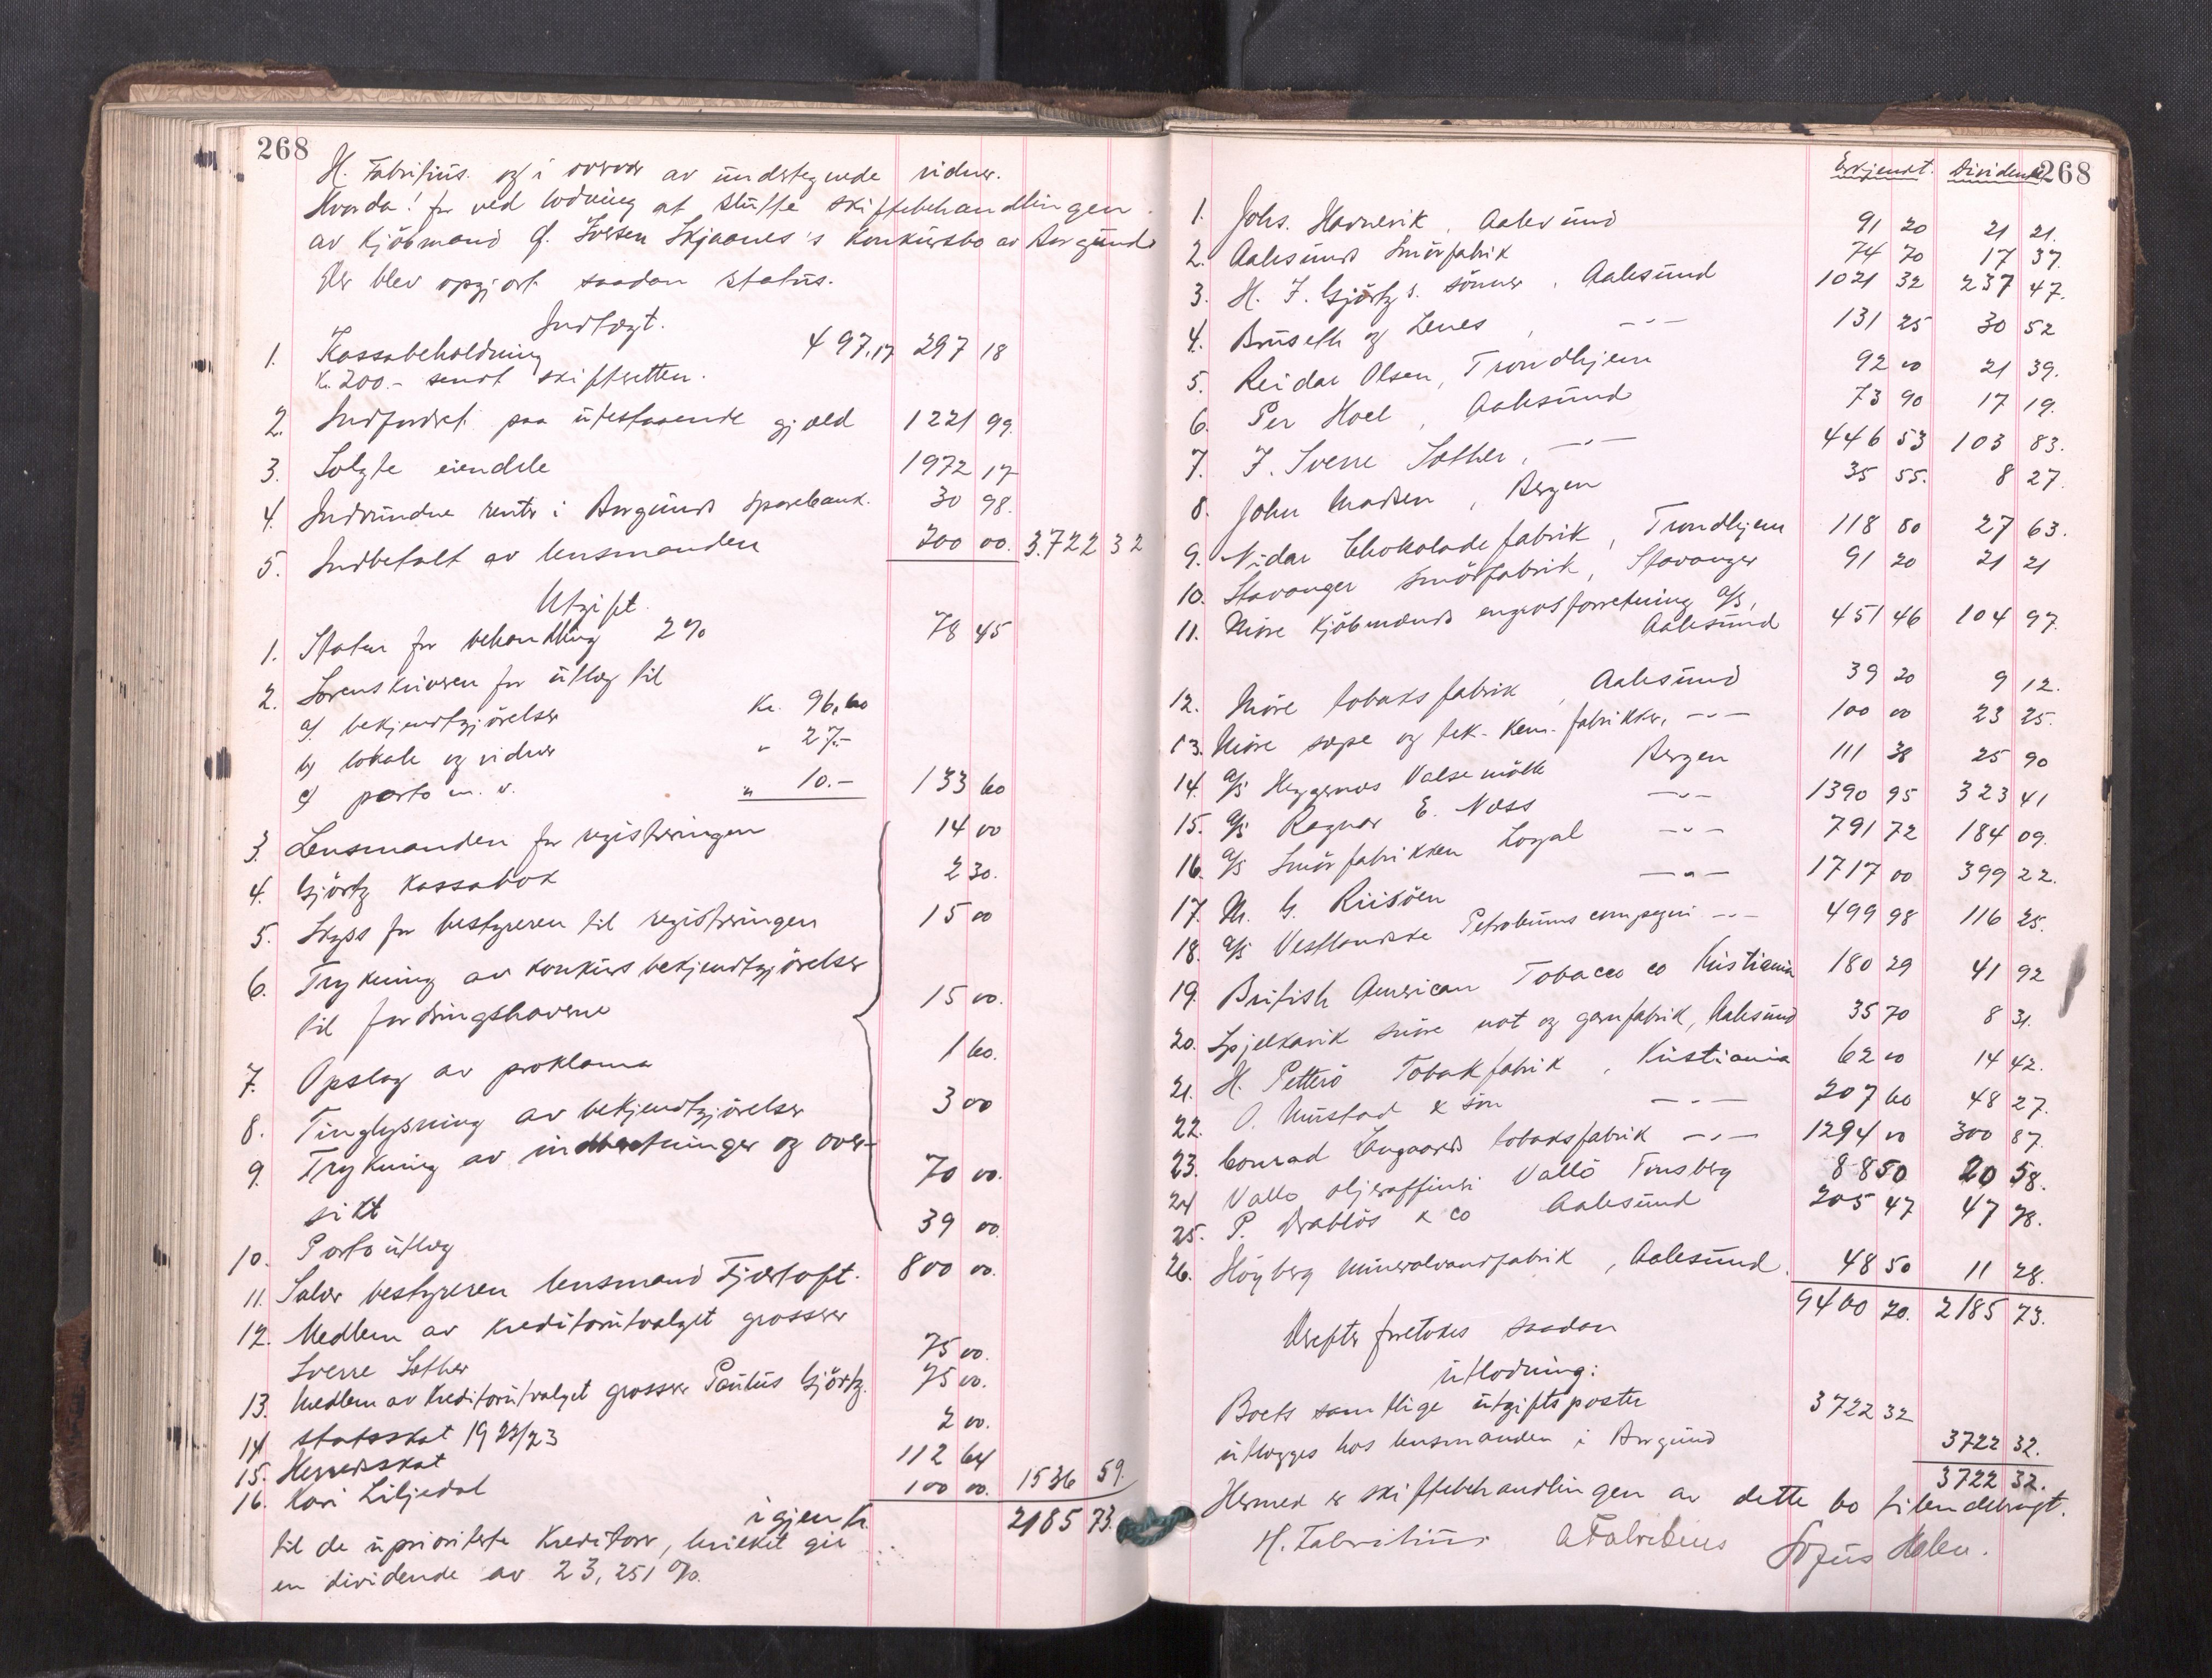 268
H. Fabritius. og i overvær av undertegnede vidner.
Hvorda! for ved lodning at slutte skiftebehandlingen
av kjöbmand O. Iversen Skjaanes's konkursbo av Borgund.
Der blev opgjort saadan status.
Indtægt.
1. Kassabeholdning 497,17 297 18
Kr. 200.- sendt skifteretten.
2. Indfordret paa utestaaende gjæld 1221 99.
3. Solgte eiendele 1972 17
4. Indvundne renter i Borgunds sparebank. 30 98.
5. Indbetalt av lensmanden 200 00. 3.722 32
Utgift.
1. Staten for behandling 2% 78 45
2. Sorenskriveren for utlæg til
a) bekjendtgjörelser Kr. 96,60
b) lokale og vidner " 27.-
c) porto m. v. " 10.- 133 60
3. Lensmanden for registreringen 14 00
4. Gjörtz kassabok 2 30.
5. Skyss for bestyreren til registreringen 15 00
6. Trykning av konkurs bekjendtgjörelser
til fordringshaverne 15 00.
7. Opslag av proklama 1 60.
8. Tinglysning av bekjendtgjörelser 3 00
9. Trykning av indberetninger og over-
sikt 70 00.
10. Porto utlæg 39 00.
11. Salær bestyreren lensmand Fjærtoft. 800 00.
12. Medlem av kreditorutvalget grosserer
Sverre Sæther 75 00.
13. Medlem av kreditorutvalget grosserer Paulus Gjörtz. 75 00.
14 Statsskat 1922/23 2 00.
15. Herredsskat 112 64
16. Kari Liljedal 100 00. 1536 59.
igjen kr. 2185 73.
til de uprioriterte kreditorer, hvilket gir
en dividende av 23,251 %.
Erkjendt. Dividende 268
1. Johs. Havnevik, Aalesund 91 20 21 21.
2. Aalesunds Smörfabrik 74 70 17 37.
3. H. J. Gjörtz s. sönner, Aalesund 1021 32 237 47.
4. Bruseth og Lenes, -"- 131 25 30 52
5. Reidar Olsen, Trondhjem 92 00 21 39.
6. Per Hoel, Aalesund 73 90 17 19.
7. F. Sverre Sæther, -"- 446 53 103 83.
8. John Madsen, Bergen 35 55. 8 27.
9. Nidar Chokoladefabrik, Trondhjem 118 80 27 63.
10. Stavanger Smörfabrik, Stavanger 91 20 21 21
11. Möre Kjöbmænds engrosforretning A/S,
Aalesund 451 46 104 97.
12. Möre tobaksfabrik, Aalesund 39 20 9 12.
13. Möre sæpe og tek- kem- fabrikker, -"- 100 00 23 25.
14. A/S Heggernes Valsemölle Bergen 111 38 25 90
15. A/S Ragnar E. Næss -"- 1390 95 323 41
16. A/S Smörfabrikken Loyal -"- 791 72 184 09.
17. M. G. Riisöen -"- 1717 00 399 22.
18. A/S Vestlandske Petroleums compagni -"- 499 98 116 25.
19. British American Tobacco co Kristiania 180 29 41 92
20. Spjelkavik snöre not og garnfabrik, Aalesund 35 70 8 31.
21. H. Petterö Tobakfabrik, Kristiania 62 00 14 42.
22. O. Mustad & sön -"- 207 60 48 27.
23. Conrad Langaards tobaksfabrik -"- 1294 00 300 87.
24 Vallö oljeraffineri Vallö Tönsberg 88 50 20 58.
25. P. Drablös & co Aalesund 205 47 47 78.
26. Höyberg mineralvandfabrik, Aalesund. 48 50 11 28.
9400 20. 2185 73.
Derefter foretokes saadan
utlodning:
Boets samtlige utgiftsposter 3722 32
utlægges hos lensmanden i Borgund 3722 32.
3722 32.
Hermed er skiftebehandlingen av dette bo tilendebragt.
H. Fabritius. A Fabritius Sofus Holen.